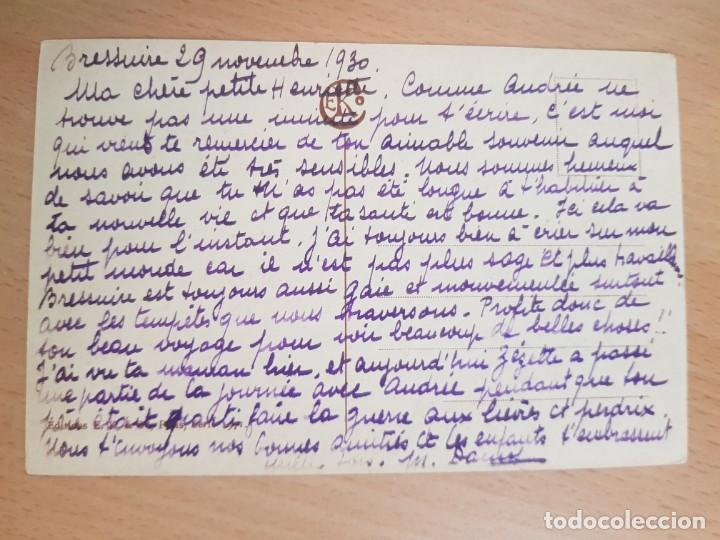 Bressuire 29 novembre 1930.
Ma chère petite Henriette, Comme Andrée ne
trouve pas une minute pour t'écrire, c'est moi
qui vient te remercier de ton aimable souvenir auquel
nous avons été très sensibles. Nous sommes heureux
de savoir que tu n'as pas été longue à t'habituer à
ta nouvelle vie et que ta santé est bonne. Ici cela va
bien pour l'instant. J'ai toujours bien à crier sur mon
petit monde car il n'est pas plus sage et plus travailleur.
Bressuire est toujours aussi gaie et mouvementée surtout
avec les tempêtes que nous traversons. Profite donc de
ton beau voyage pour voir beaucoup de belles choses!!
J'ai vu ta maman hier, et aujourd'hui Zézette a passé
une partie de la journée avec Andrée pendant que ton
père était parti faire la guerre aux lièvres et perdrix.
Nous t'envoyons nos bonnes amitiés et les enfants t'embrassent
mille fois. M.
EK
Editions
todocoleccion
todocoleccion.net